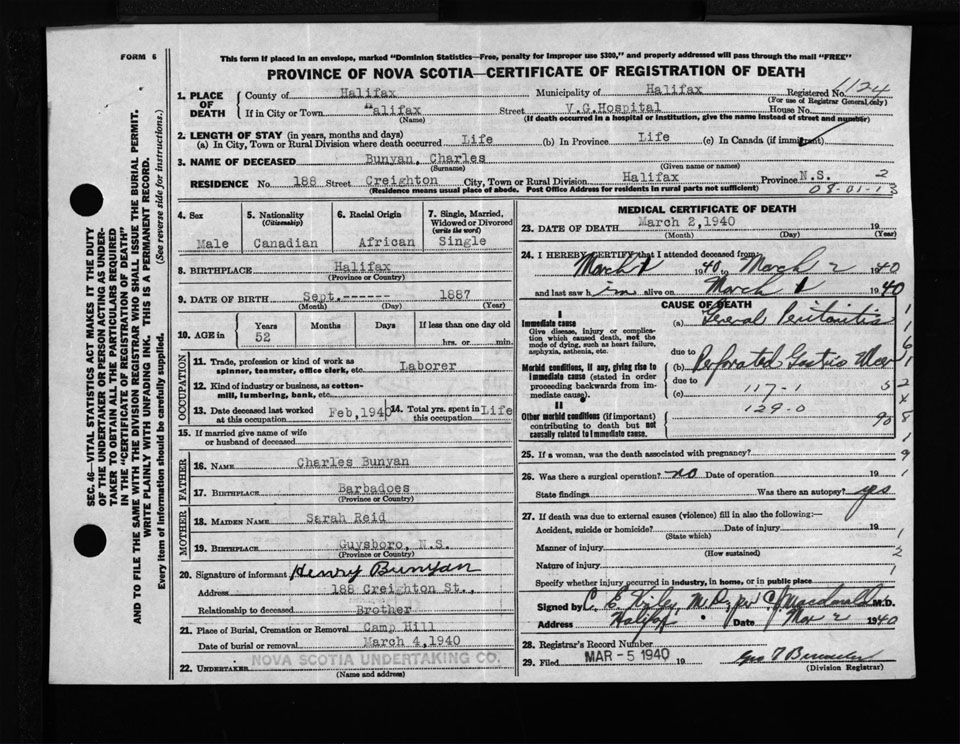 FORM 6
This form if placed in an envelope, marked "Dominion Statistics—Free, penalty for improper use $300," and properly addressed will pass through the mail "FREE"
PROVINCE OF NOVA SCOTIA—CERTIFICATE OF REGISTRATION OF DEATH
SEC. 46—VITAL STATISTICS ACT MAKES IT THE DUTY
OF THE UNDERTAKER OR PERSON ACTING AS UNDER-
TAKER TO OBTAIN ALL THE PARTICULARS REQUIRED
IN THE "CERTIFICATE OF REGISTRATION OF DEATH"
AND TO FILE THE SAME WITH THE DIVISION REGISTRAR WHO SHALL ISSUE THE BURIAL PERMIT.
WRITE PLAINLY WITH UNFADING INK. THIS IS A PERMANENT RECORD.
Every item of information should be carefully supplied. (See reverse side for instructions.)
1. PLACE OF DEATH
County of Halifax Municipality of Halifax Registered No. 1124
(For use of Registrar General only)
If in City or Town Halifax Street V.G.Hospital House No.
(Name) (If death occurred in a hospital or institution, give the name instead of street and number)
2. LENGTH OF STAY (in years, months and days)
(a) In City, Town or Rural Division where death occurred Life (b) In Province Life (c) In Canada (if immigrant)
3. NAME OF DECEASED Bunyan, Charles
(Surname) (Given name or names)
RESIDENCE No. 188 Street Creighton City, Town or Rural Division Halifax Province N.S. 2
(Residence means usual place of abode. Post Office Address for residents in rural parts not sufficient) 08-01-13
4. Sex 5. Nationality (Citizenship) 6. Racial Origin 7. Single, Married, Widowed or Divorced (write the word)
Male Canadian African Single
8. BIRTHPLACE Halifax
(Province or Country)
9. DATE OF BIRTH Sept.------ 1887
(Month) (Day) (Year)
10. AGE in Years Months Days If less than one day old
52 hrs. or min.
OCCUPATION
11. Trade, profession or kind of work as
spinner, teamster, office clerk, etc. Laborer
12. Kind of industry or business, as cotton-
mill, lumbering, bank, etc.
13. Date deceased last worked at this occupation Feb,1940 14. Total yrs. spent in this occupation Life
15. If married give name of wife
or husband of deceased
FATHER
16. NAME Charles Bunyan
17. BIRTHPLACE Barbadoes
(Province or Country)
MOTHER
18. MAIDEN NAME Sarah Reid
19. BIRTHPLACE Guysboro, N.S.
(Province or Country)
20. Signature of informant Henry Bunyan
Address 188 Creighton St.,
Relationship to deceased Brother
21. Place of Burial, Cremation or Removal Camp Hill
Date of burial or removal March 4,1940
22. UNDERTAKER NOVA SCOTIA UNDERTAKING CO.
(Name and address)
MEDICAL CERTIFICATE OF DEATH
23. DATE OF DEATH March 2,1940 19
(Month) (Day) (Year)
24. I HEREBY CERTIFY that I attended deceased from
March 1 1940 to March 2 1940
and last saw him alive on March 1 1940
CAUSE OF DEATH
I
Immediate cause (a) General Peritonitis
Give disease, injury or complica-
tion which caused death, not the
mode of dying, such as heart failure,
asphyxia, asthenia, etc.
due to Perforated Gastric Ulcer
Morbid conditions, if any, giving rise to
immediate cause (stated in order
proceeding backwards from im-
mediate cause).
due to
(c) 117-1
129-0
II
Other morbid conditions (if important)
contributing to death but not
causally related to immediate cause.
25. If a woman, was the death associated with pregnancy?
26. Was there a surgical operation? no Date of operation 19
State findings Was there an autopsy? yes
27. If death was due to external causes (violence) fill in also the following:—
Accident, suicide or homicide? Date of injury 19
(State which)
Manner of injury
(How sustained)
Nature of injury
Specify whether injury occurred in industry, in home, or in public place
Signed by C. E. M.D. per C. J. Macdonald M.D.
Address Halifax Date Mar 2 1940
28. Registrar's Record Number
29. Filed MAR -5 1940 19
(Division Registrar)